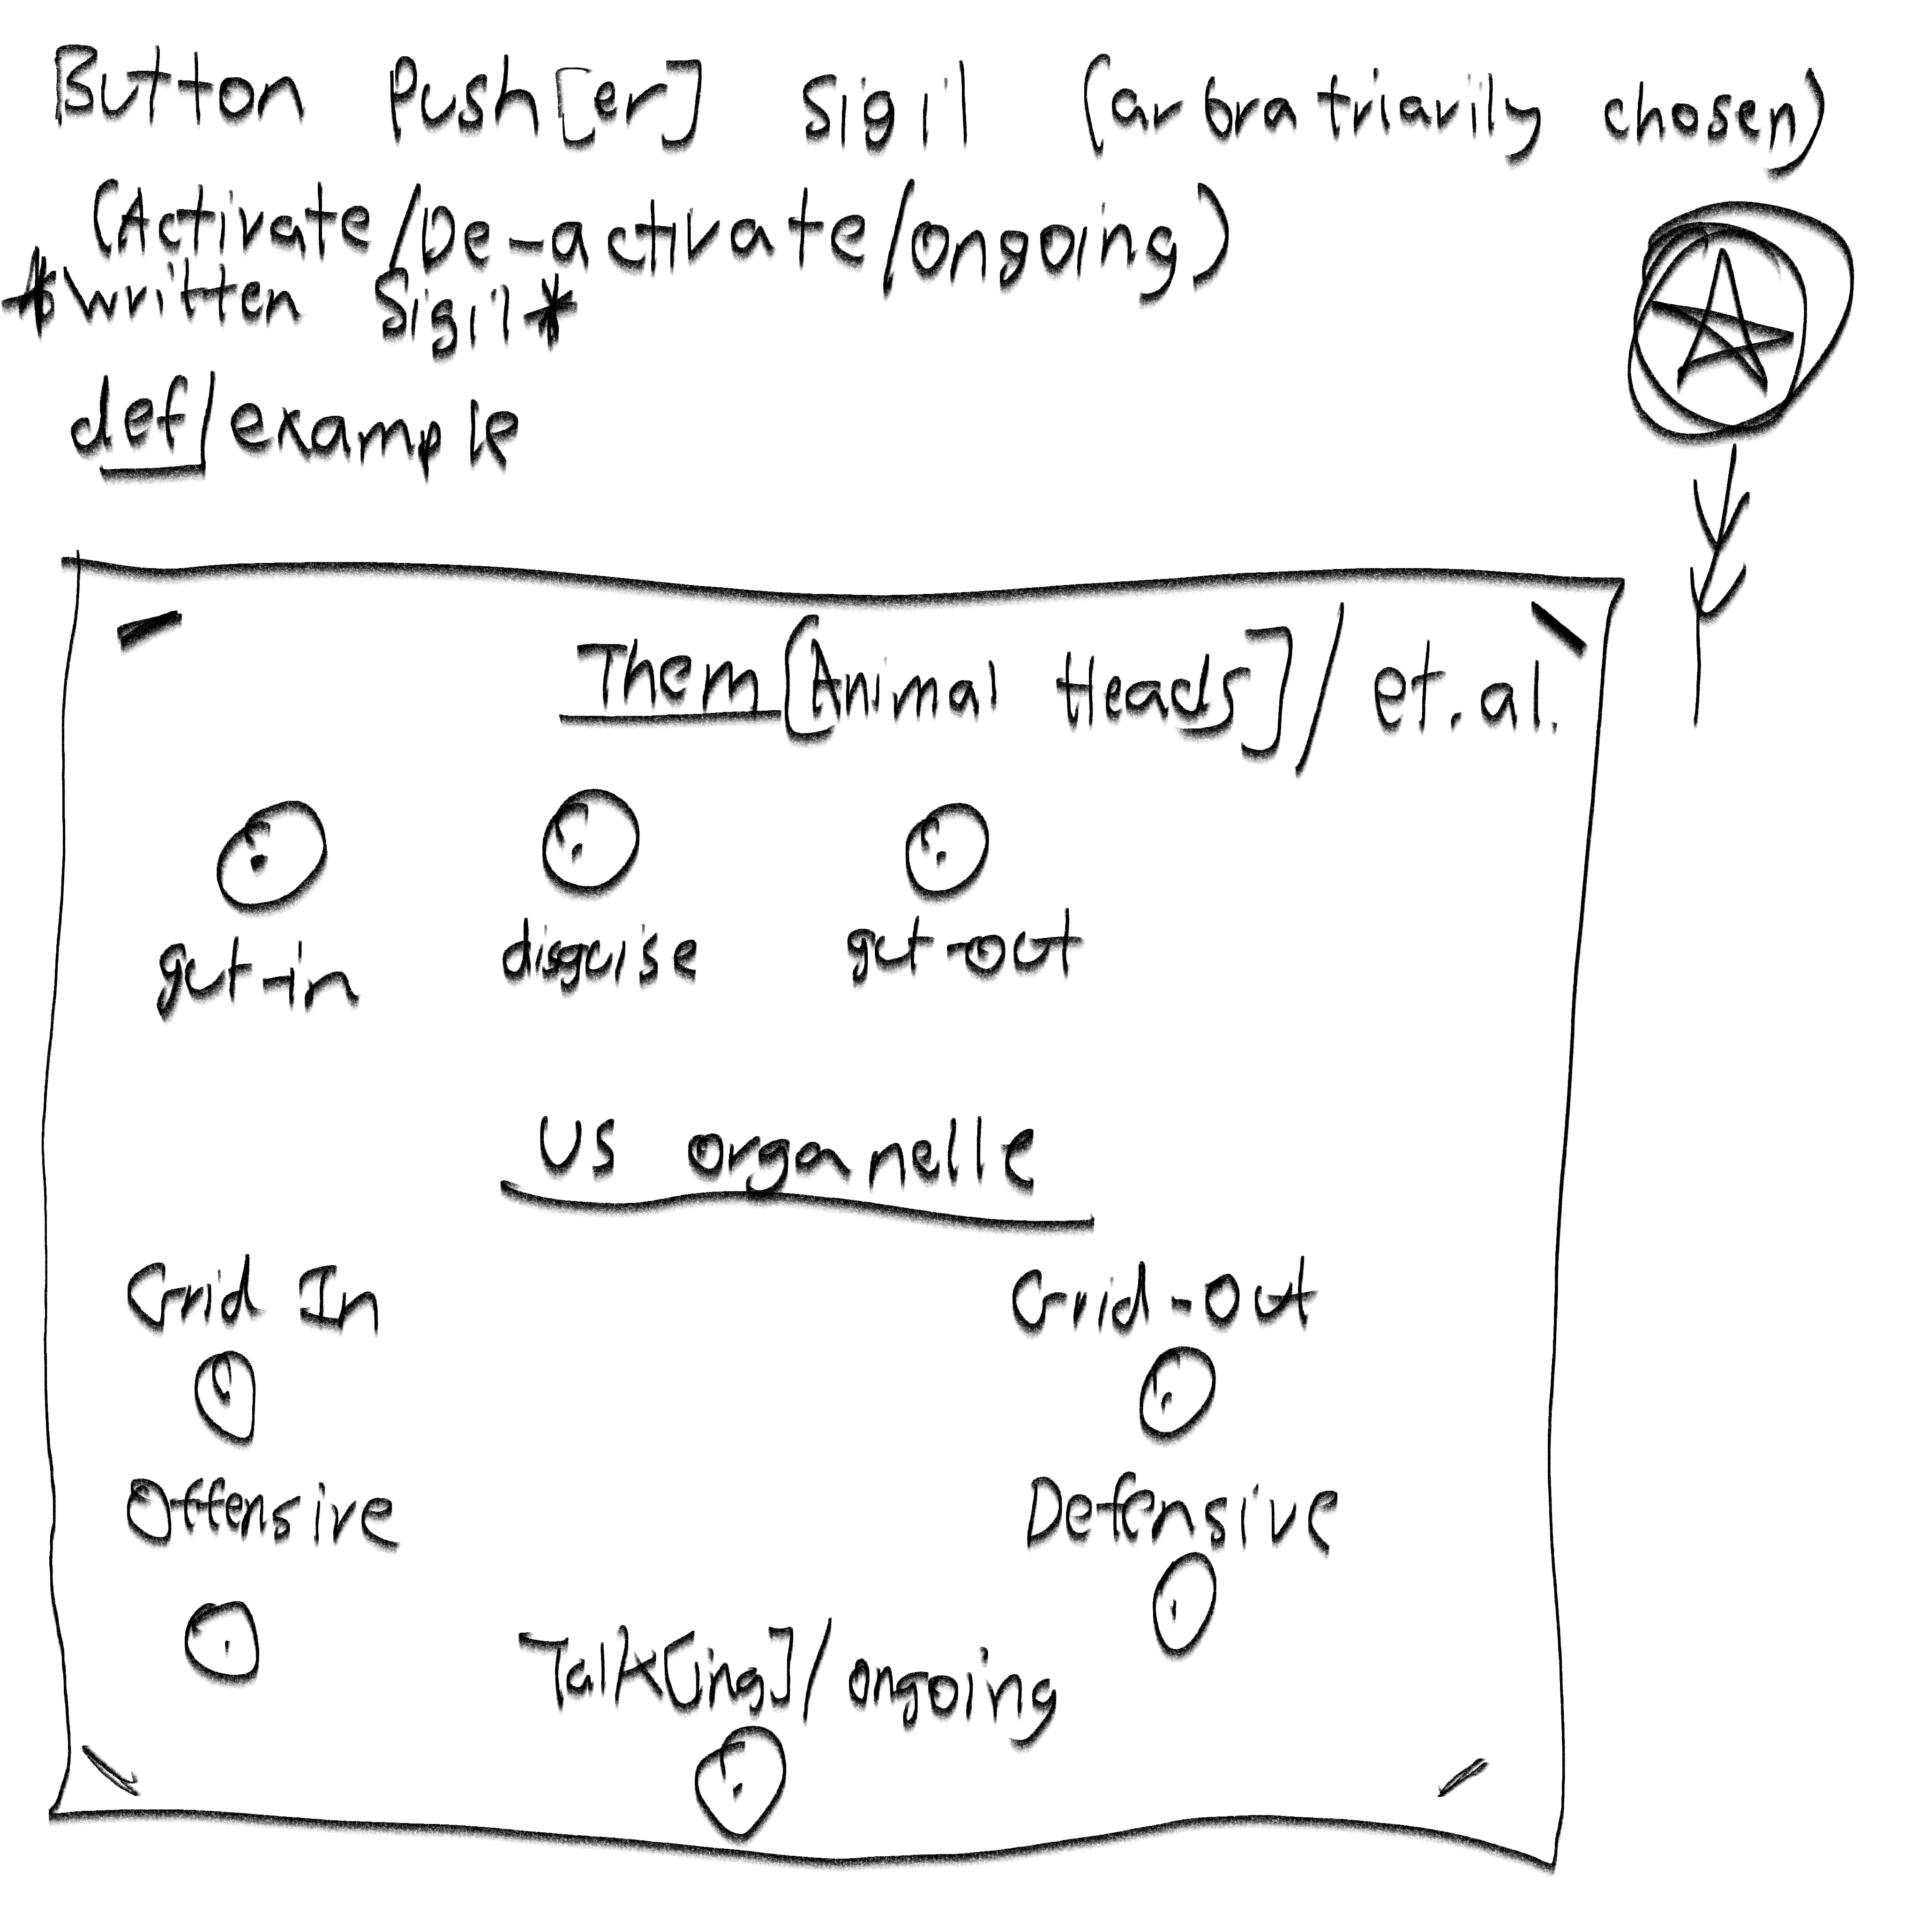 Button Push[er] Sigil (arbratriarily chosen)
(Activate/De-activate/ongoing)
*written Sigil*
def/example
Them[Animal Heads]/et.al.
gut-in disguise gut-out
US organelle
Grid In Grid-Out
Offensive Defensive
Talk[ing]/ongoing